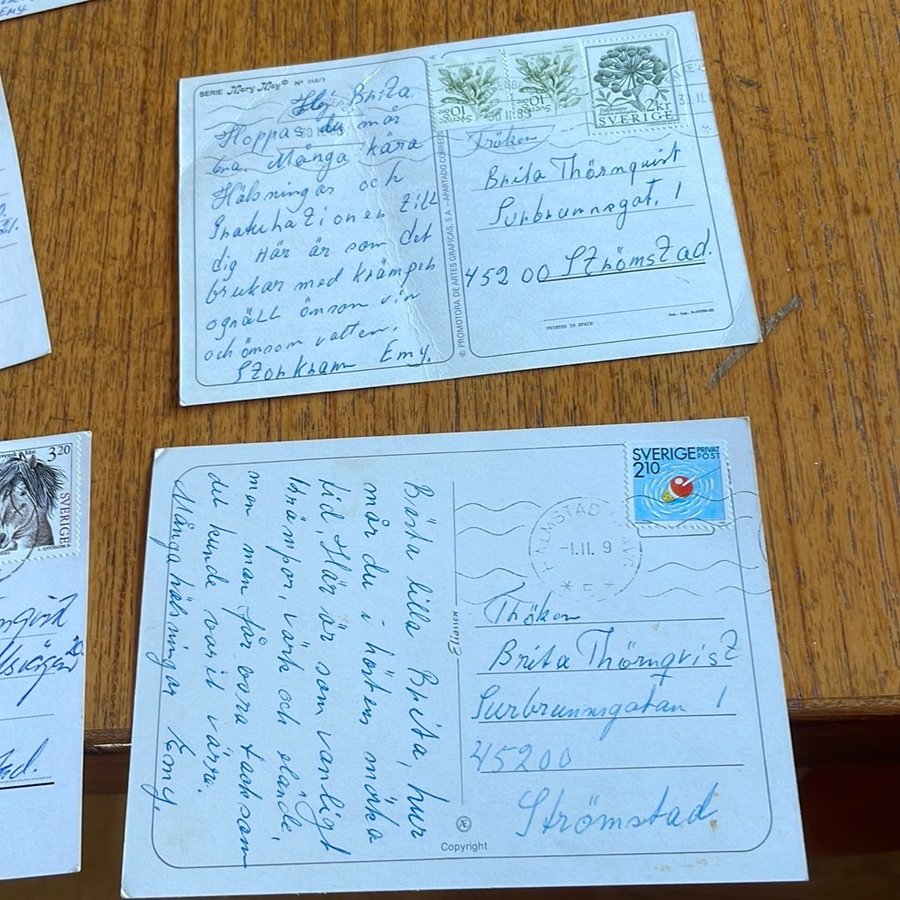 EMY
SERIE Mary May © Nº 268/3
Hej Brita
Hoppas du mår
bra Många kära
Hälsningar och
Gratulationer till
dig Här är som det
brukar med krämper
ognäll ömsom vin
och ömsom vatten.
Storkram Emy.
© PROMOTORA DE ARTES GRAFICAS, S.A. – APARTADO CORREOS
Sverige
10
Sverige
10
2kr
SVERIGE
30 11.83
Fröken
Brita Thörnquist
Surbrunnsgat. 1
45200 Strömstad.
PRINTED IN SPAIN
3.20
SVERIGE
Bästa lilla Brita, hur
mår du i hösten mörka
tid, Här är som vanligt
krämpor, värk och elände,
men man får vara tacksam
det kunde varit värre.
Många hälsningar Emy.
Eliasson
SVERIGE PRIVAT
210 POST
HALMSTAD
-1.11.9
Fröken
Brita Thörnqvist
Surbrunnsgatan 1
45200
Strömstad.
Æ
Copyright